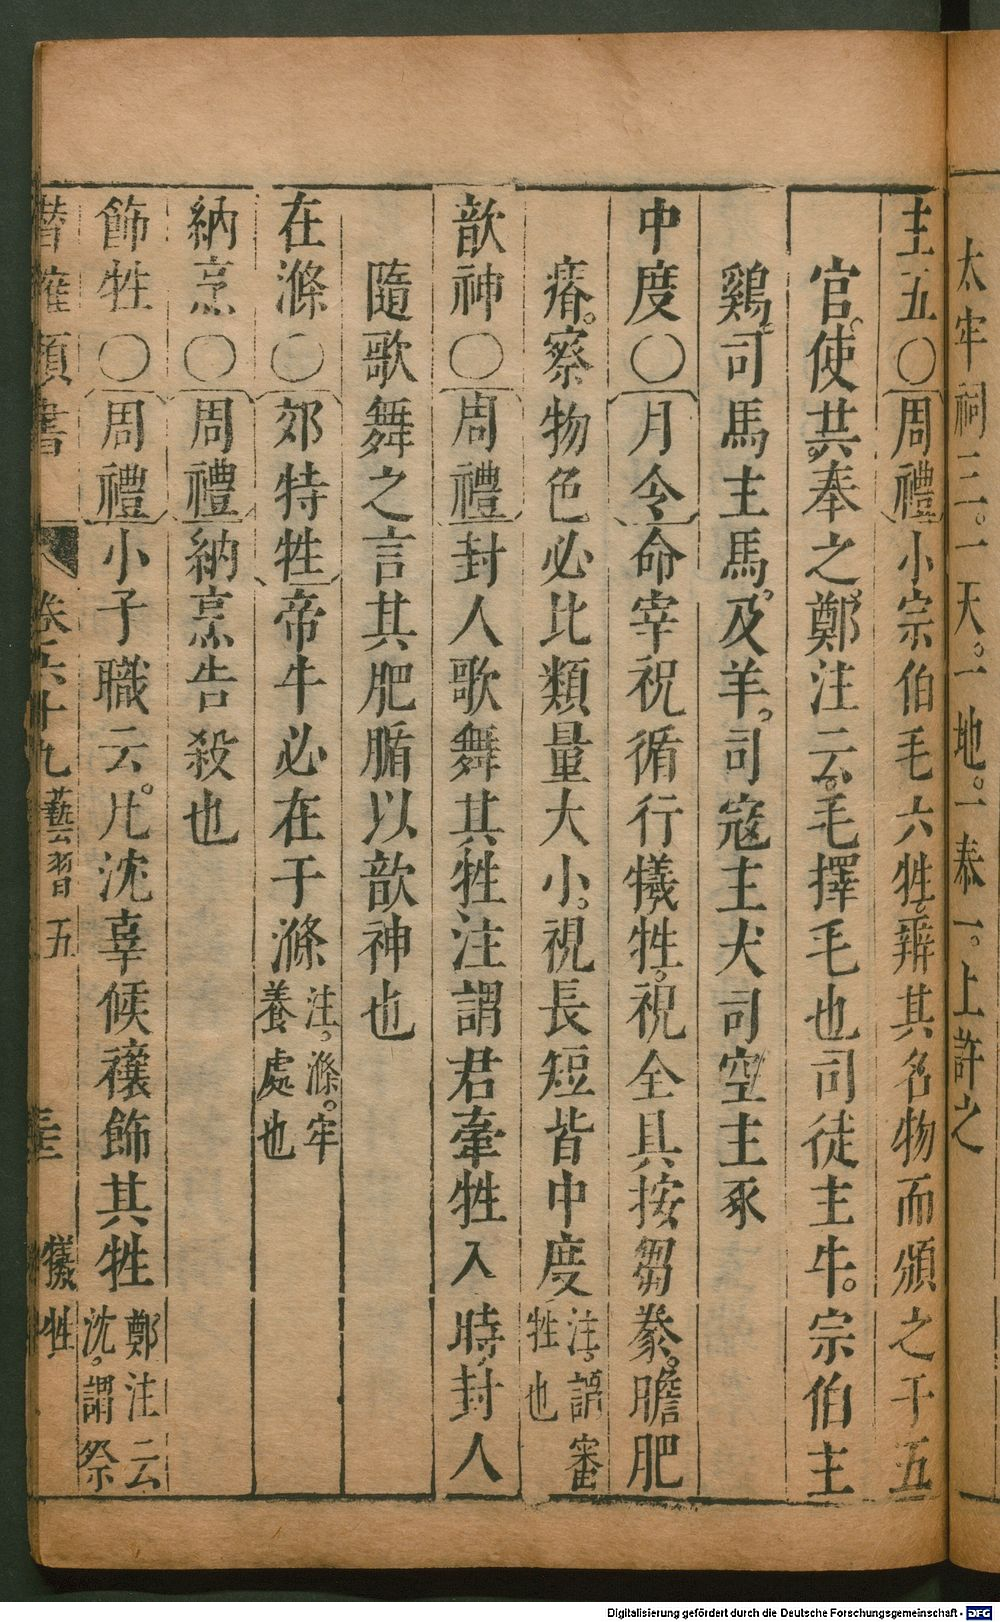 太牢祠三。一天。一地。一泰一。上許之
主五〇周禮小宗伯毛六牲。辨其名物而頒之于五
官。使共。奉之鄭注云。毛擇毛也司徒主牛。宗伯主
鷄。司馬主馬。及羊。司寇主犬司空主豕
中度〇月令命宰祝循行犧牲。視全具按芻豢。瞻肥
瘠。察物色必比類量大小。視長短皆中度注。謂審牲也
歆神〇周禮封人歌舞其牲注謂君牽牲入時封人
隨歌舞之言其肥腯以歆神也
在滌〇郊特牲帝牛必在于滌注。滌。牢養處也
納烹〇周禮納烹告殺也
飾牲〇周禮小子職云。凡沈辜候禳飾其牲鄭注云沈。謂祭
潛確類書 卷六十九藝習五 犧牲
Digitalisierung gefördert durch die Deutsche Forschungsgemeinschaft - DFG